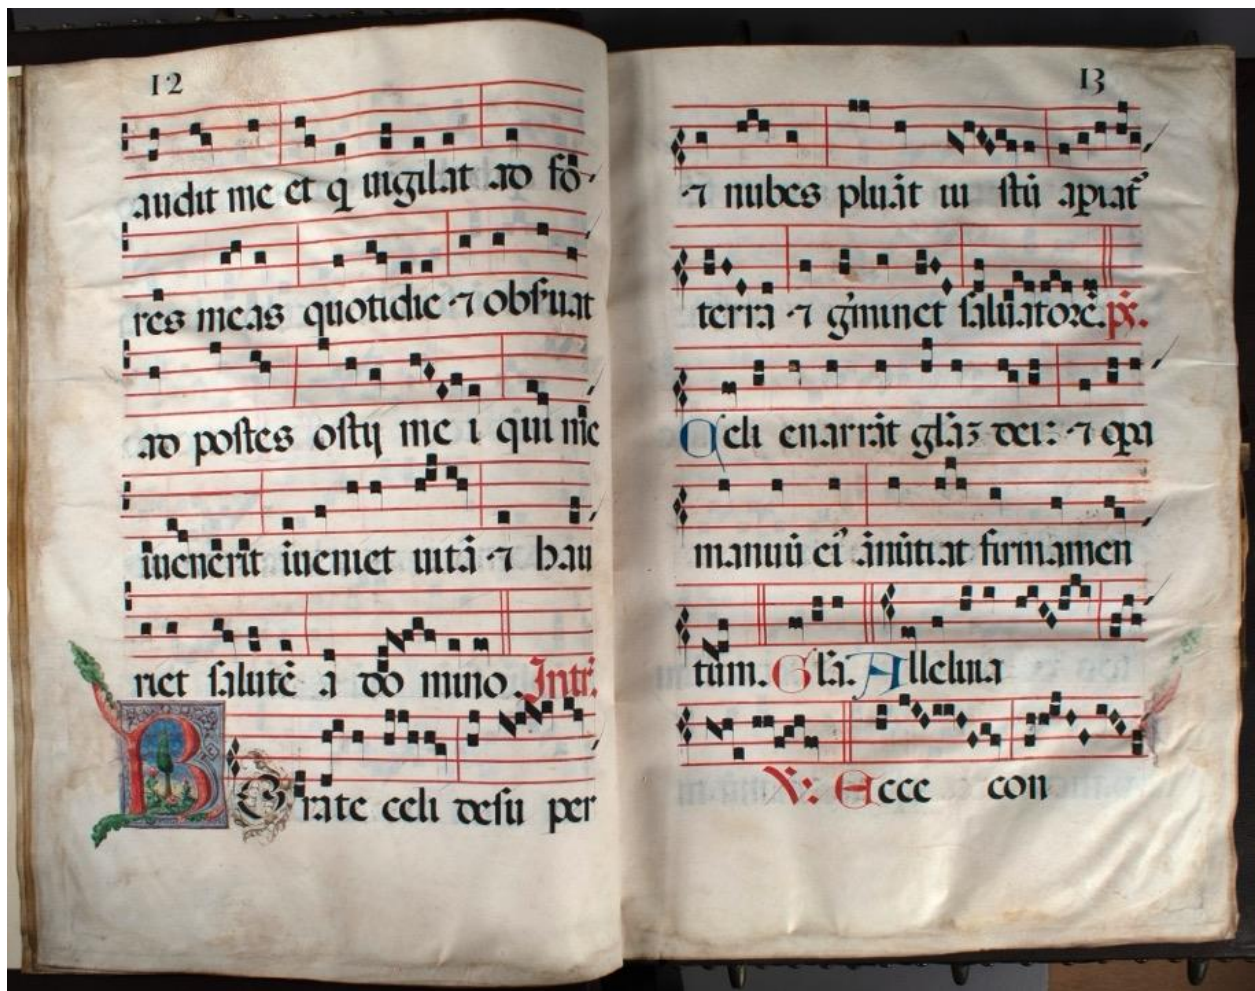 12
audit me et q uigilat ad fo
res meas quotidie ⁊ obsuat
ad postes ostij me i qui me
iuenerit iueniet uitā ⁊ hau
riet salutē a do mino. Intr.
Rorate celi desu per
13
⁊ nubes pluāt iu stū apiat
terra ⁊ gminet saluatorē. ps.
Celi enarrāt glāȝ dei: ⁊ opa
manuū ei ānūtiat firmamen
tum. Gla. Alleluia
V: Ecce con